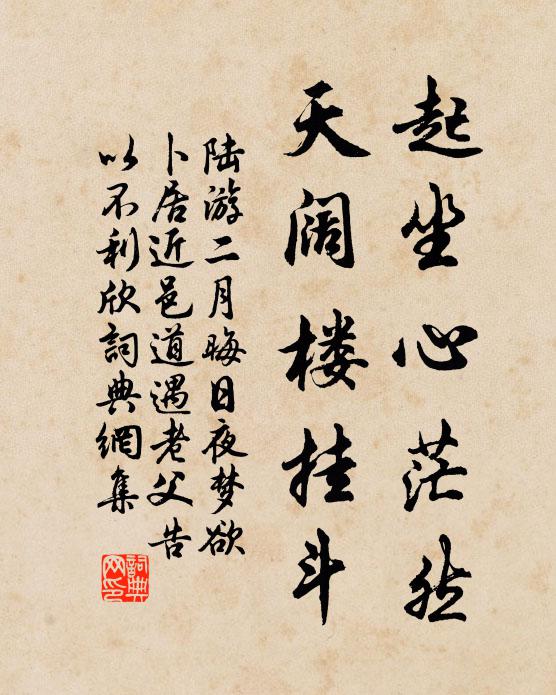 起坐心茫然
天阔楼挂斗
陆游二月晦日夜梦欲
卜居近邑道遇老父告
以不利欣詞典網集
詞典
网印